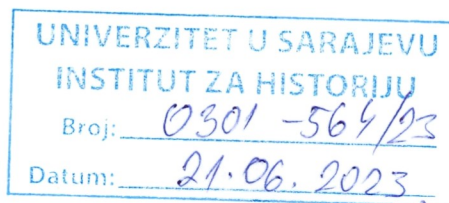 UNIVERZITET U SARAJEVU
INSTITUT ZA HISTORIJU
Broj: 0301-564/23
Datum: 21.06.2023